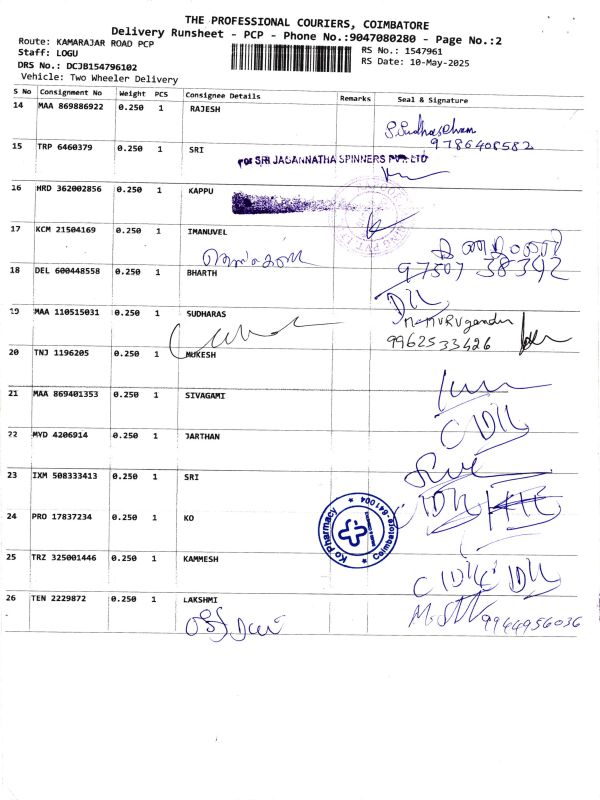 THE PROFESSIONAL COURIERS, COIMBATORE
Delivery Runsheet - PCP - Phone No.:9047080280 - Page No.:2
Route: KAMARAJAR ROAD PCP
Staff: LOGU
RS No.: 1547961
DRS No.: DCJB154796102
RS Date: 10-May-2025
Vehicle: Two Wheeler Delivery
S No Consignment No Weight PCS Consignee Details Remarks Seal & Signature
14 MAA 869886922 0.250 1 RAJESH
9786408582
15 TRP 6460379 0.250 1 SRI
For SRI JAGANNATHA SPINNERS PVT. LTD
16 HRD 362002856 0.250 1 KAPPU
17 KCM 21504169 0.250 1 IMANUVEL
18 DEL 600448558 0.250 1 BHARTH
97507 38392
19 MAA 110515031 0.250 1 SUDHARAS
9962533426
20 TNJ 1196205 0.250 1 MUKESH
21 MAA 869401353 0.250 1 SIVAGAMI
22 MYD 4206914 0.250 1 JARTHAN
23 IXM 508333413 0.250 1 SRI
24 PRO 17837234 0.250 1 KO
Ko Pharmacy
Coimbatore-641004
25 TRZ 325001446 0.250 1 KAMMESH
26 TEN 2229872 0.250 1 LAKSHMI
9944956036